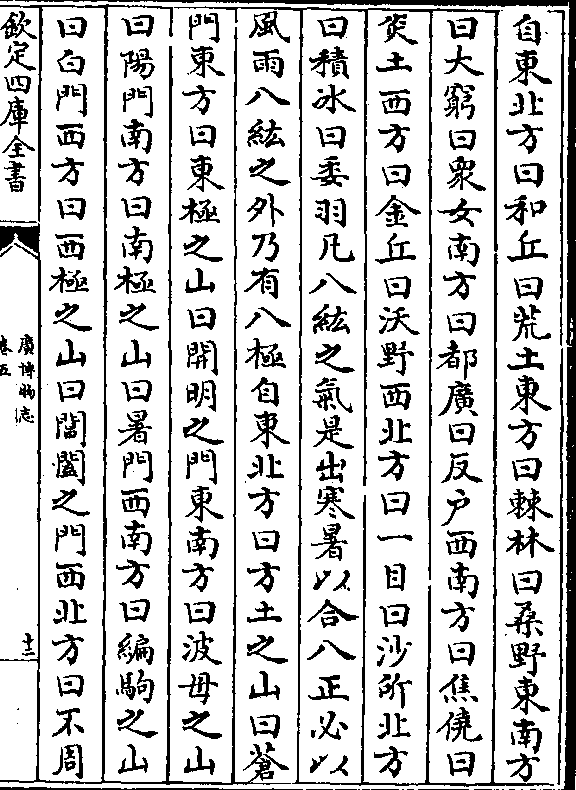 自東北方曰和丘曰荒土東方曰棘林曰桑野東南方
曰大窮曰衆女南方曰都廣曰反户西南方曰焦僥曰
炎土西方曰金丘曰沃野西北方曰一目曰沙所北方
曰積冰曰委羽凡八紘之氣是出寒暑以合八正必以
風雨八紘之外乃有八極自東北方曰方土之山曰蒼
門東方曰東極之山曰開明之門東南方曰波母之山
曰陽門南方曰南極之山曰暑門西南方曰編駒之山
曰白門西方曰西極之山曰閶闔之門西北方曰不周
欽定四庫全書
廣博物志
卷五
十二